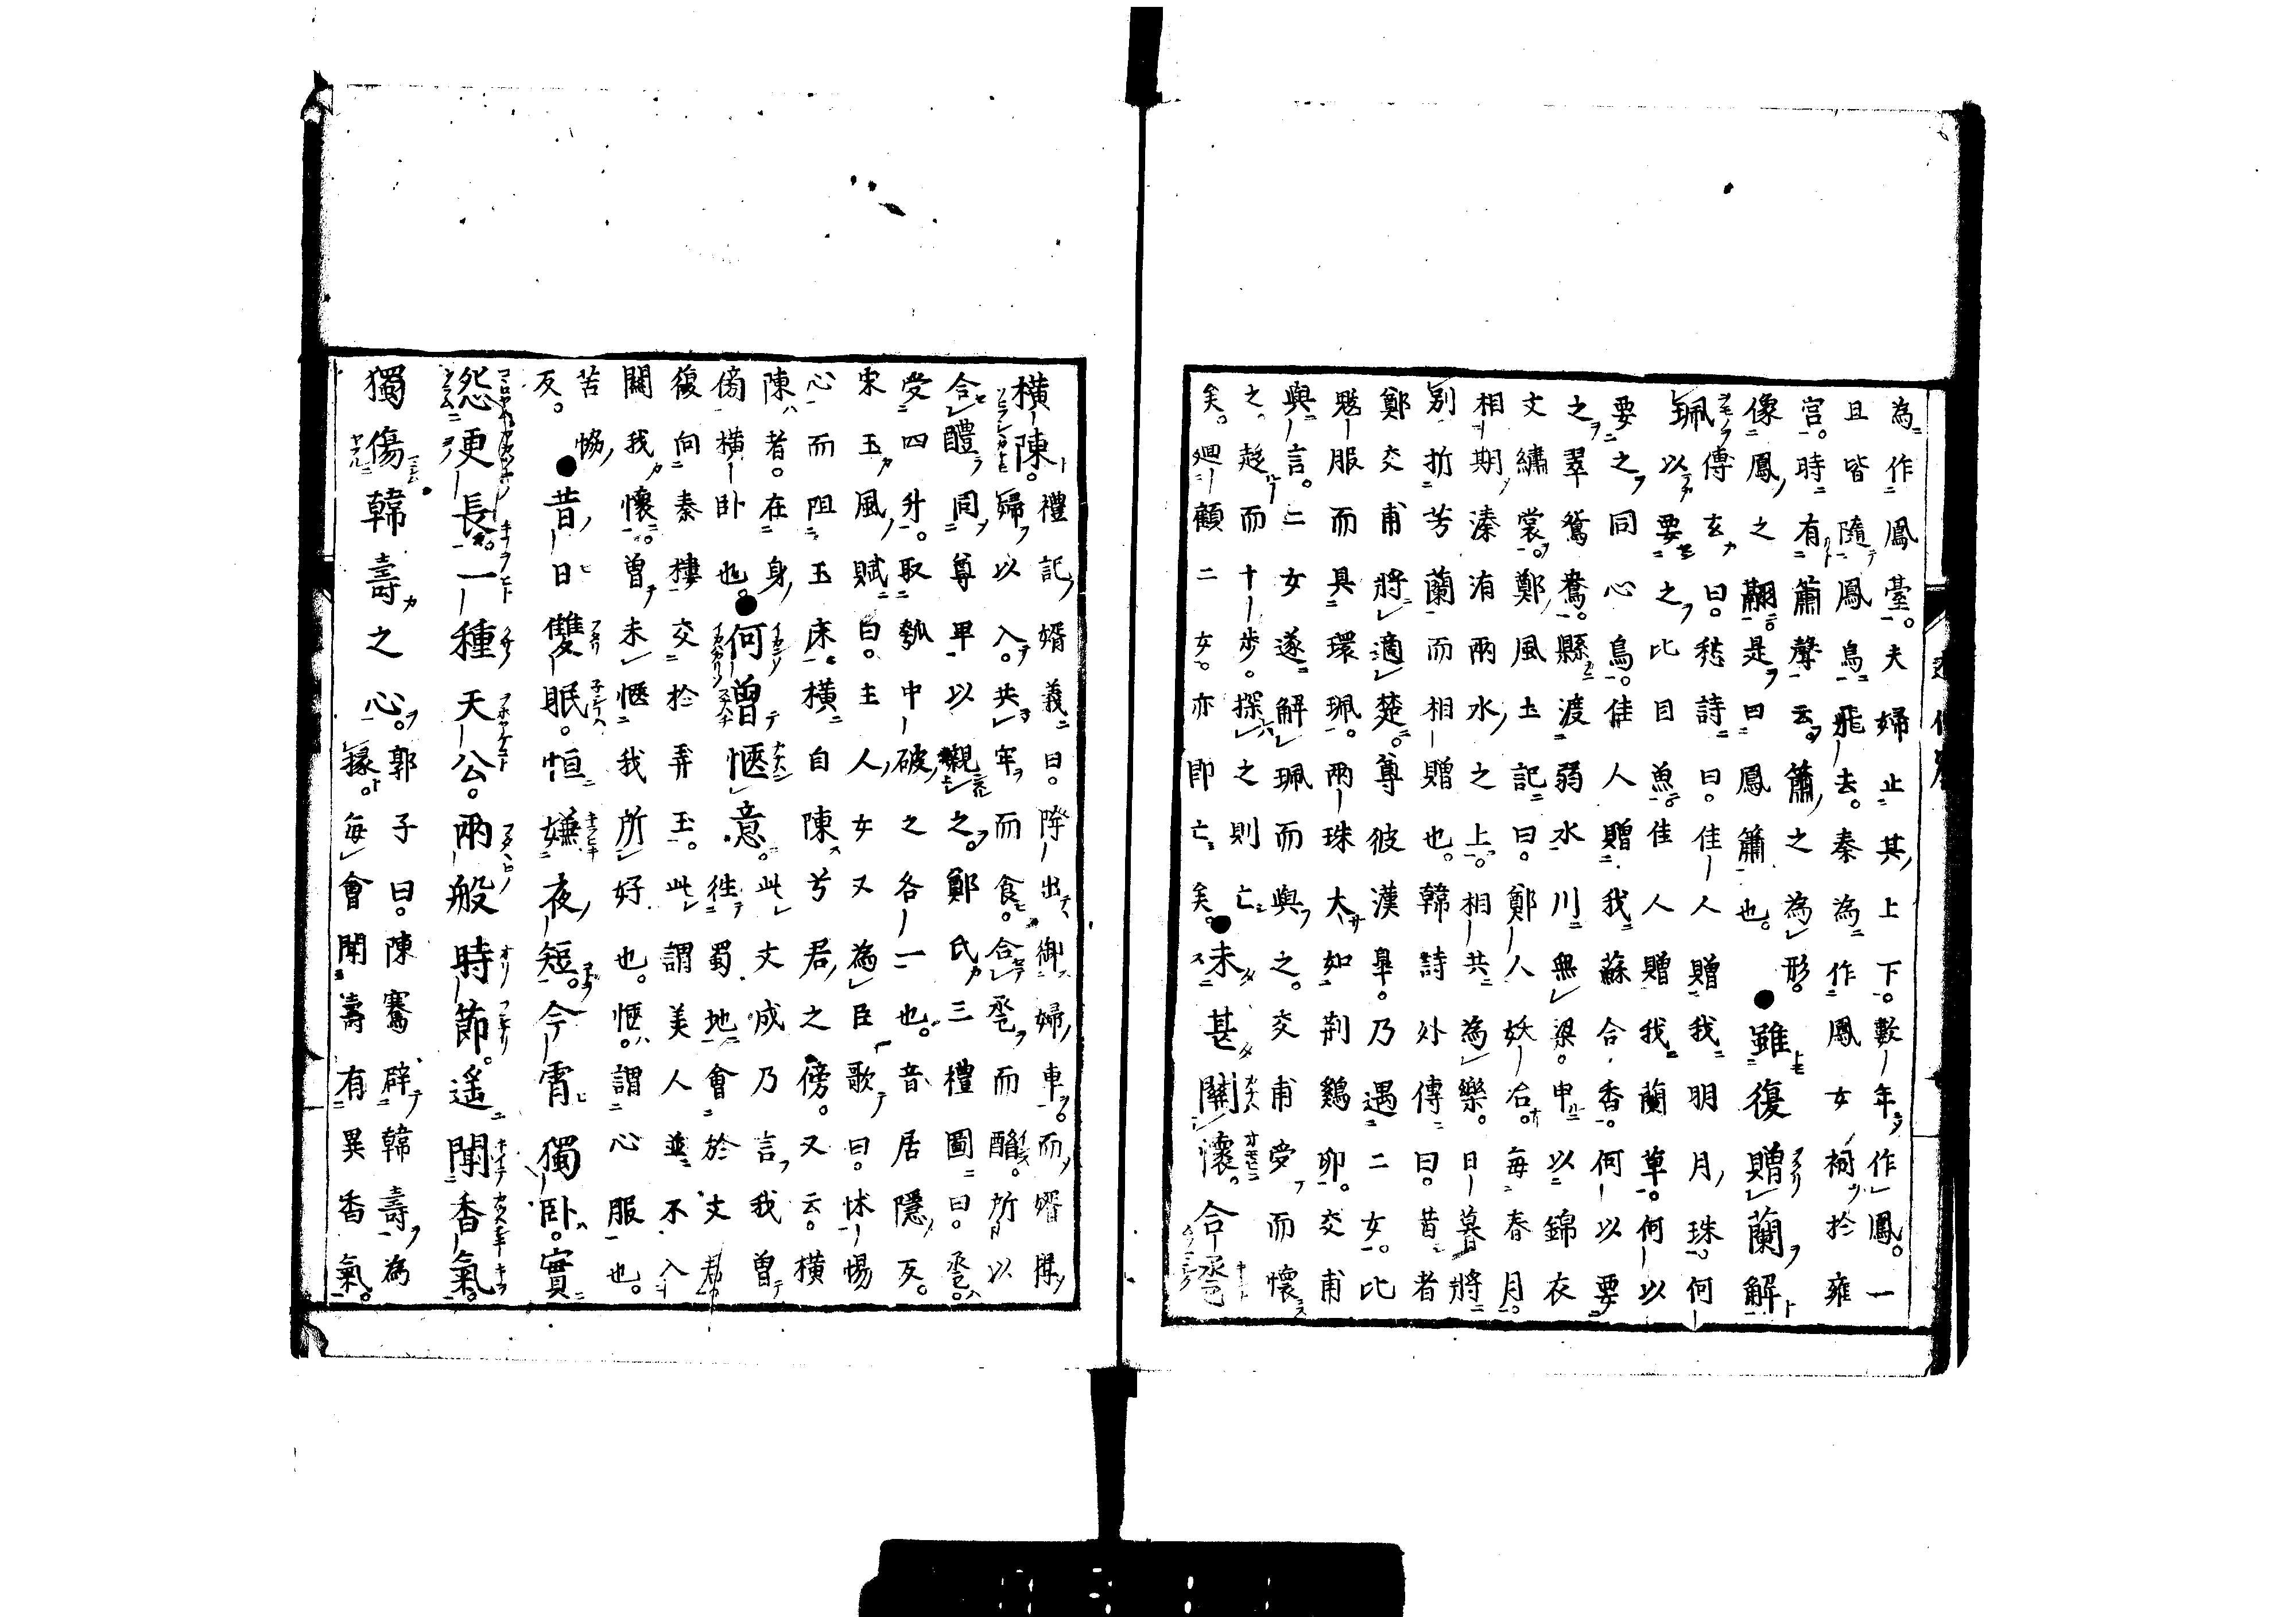 為作鳳臺。夫婦止其上下。數年。作鳳。一
且皆隨鳳烏飛去。秦為作鳳女祠於雍
宮。時有簫聲云。簫之為形。
像鳳之翮。是曰鳳簫也。●雖復贈蘭解
珮。傅玄曰。愁詩曰。佳人贈我明月珠。何
以要之比目魚。佳人贈我蘭草。何以
要之同心烏。佳人贈我蘇合香。何以要
之翠鴛鴦。縣渡弱水川無梁。申以錦衣
文繡裳。鄭風土記曰。鄭人每春月。
相期溱洧兩水之上。相共為樂。日暮將
別折芳蘭而相贈也。韓詩外傳曰。昔者
鄭交甫將適楚。尊彼漢皐。乃遇二女。比
服而具環珮。兩珠大如荆鷄卵。交甫
與言。二女遂解珮而與之。交甫受而懷
之。趍而十步。探之則亡
矣。廻顧二女。亦即亡矣。●未甚關懷。合卺
橫陳。禮記婚義曰。降出御婦車。而婿
婦以入。共牢而食。合卺而酳。所以
合體同尊卑以親之。鄭氏三禮圖曰。卺。
受四升。取瓠中破之各一也。音居隱反。
宋玉風賦曰。主人女又為臣歌曰。怵惕
心而阻玉床。橫自陳兮君之傍。又云。橫
陳者。在身傍橫卧也。●何曾愜意。此文成乃言我曾
復向秦樓交於弄玉。此謂美人並不入
關我懷。曾未愜我所好也。愜。謂心服也。
苦恊
反。●昔日雙眠。恒嫌夜短。今宵獨卧。實
怨更長。一種天公。兩般時節。遥聞香氣。
獨傷韓壽之心。郭子曰。陳騫辟韓壽為
掾。每會聞壽有異香氣。